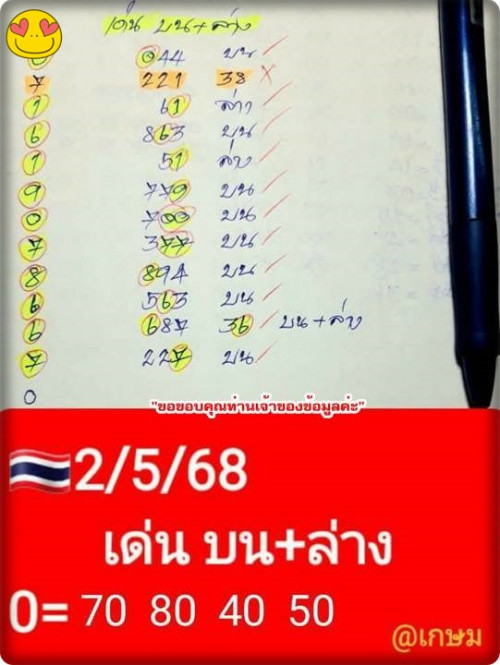 เด่น บน+ล่าง
044 บน
7 221 38
1 61 ล่าง
6 863 บน
1 51 ล่าง
9 779 บน
0 700 บน
7 377 บน
8 894 บน
6 563 บน
6 687 36 บน+ล่าง
7 227 บน
0
"ขอขอบคุณท่านเจ้าของข้อมูลค่ะ"
2/5/68
เด่น บน+ล่าง
0= 70 80 40 50
@เกษม